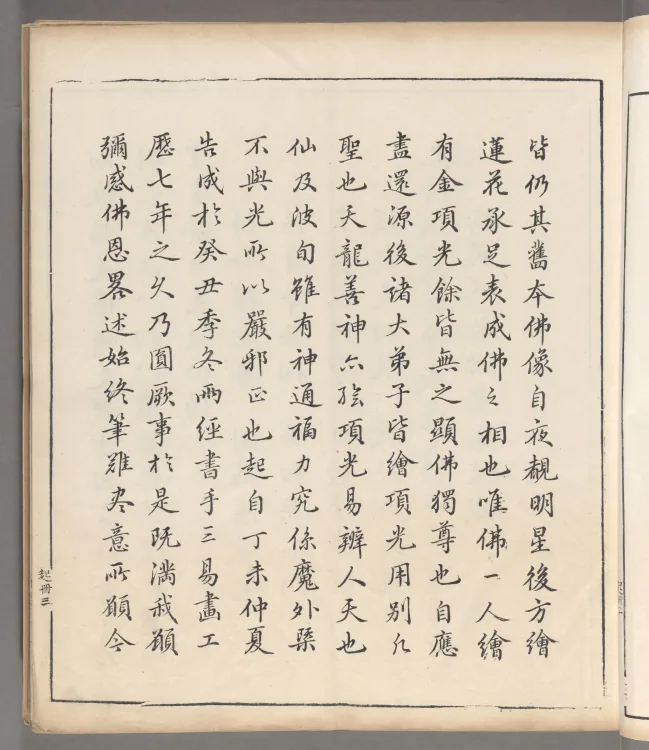 皆仍其舊本佛像自夜覩明星後方繪
蓮花承足表成佛之相也唯佛一人繪
有金項光餘皆無之顯佛獨尊也自應
盡還源後諸大弟子皆繪項光用別凡
聖也天龍善神亦繪項光易辨人天也
仙及波旬雖有神通福力究係魔外槩
不與光所以嚴邪正也起自丁未仲夏
告成於癸丑季冬兩經書手三易畫工
歷七年之久乃圓厥事於是既滿我願
彌感佛恩畧述始終筆難盡意所願今
起冊三